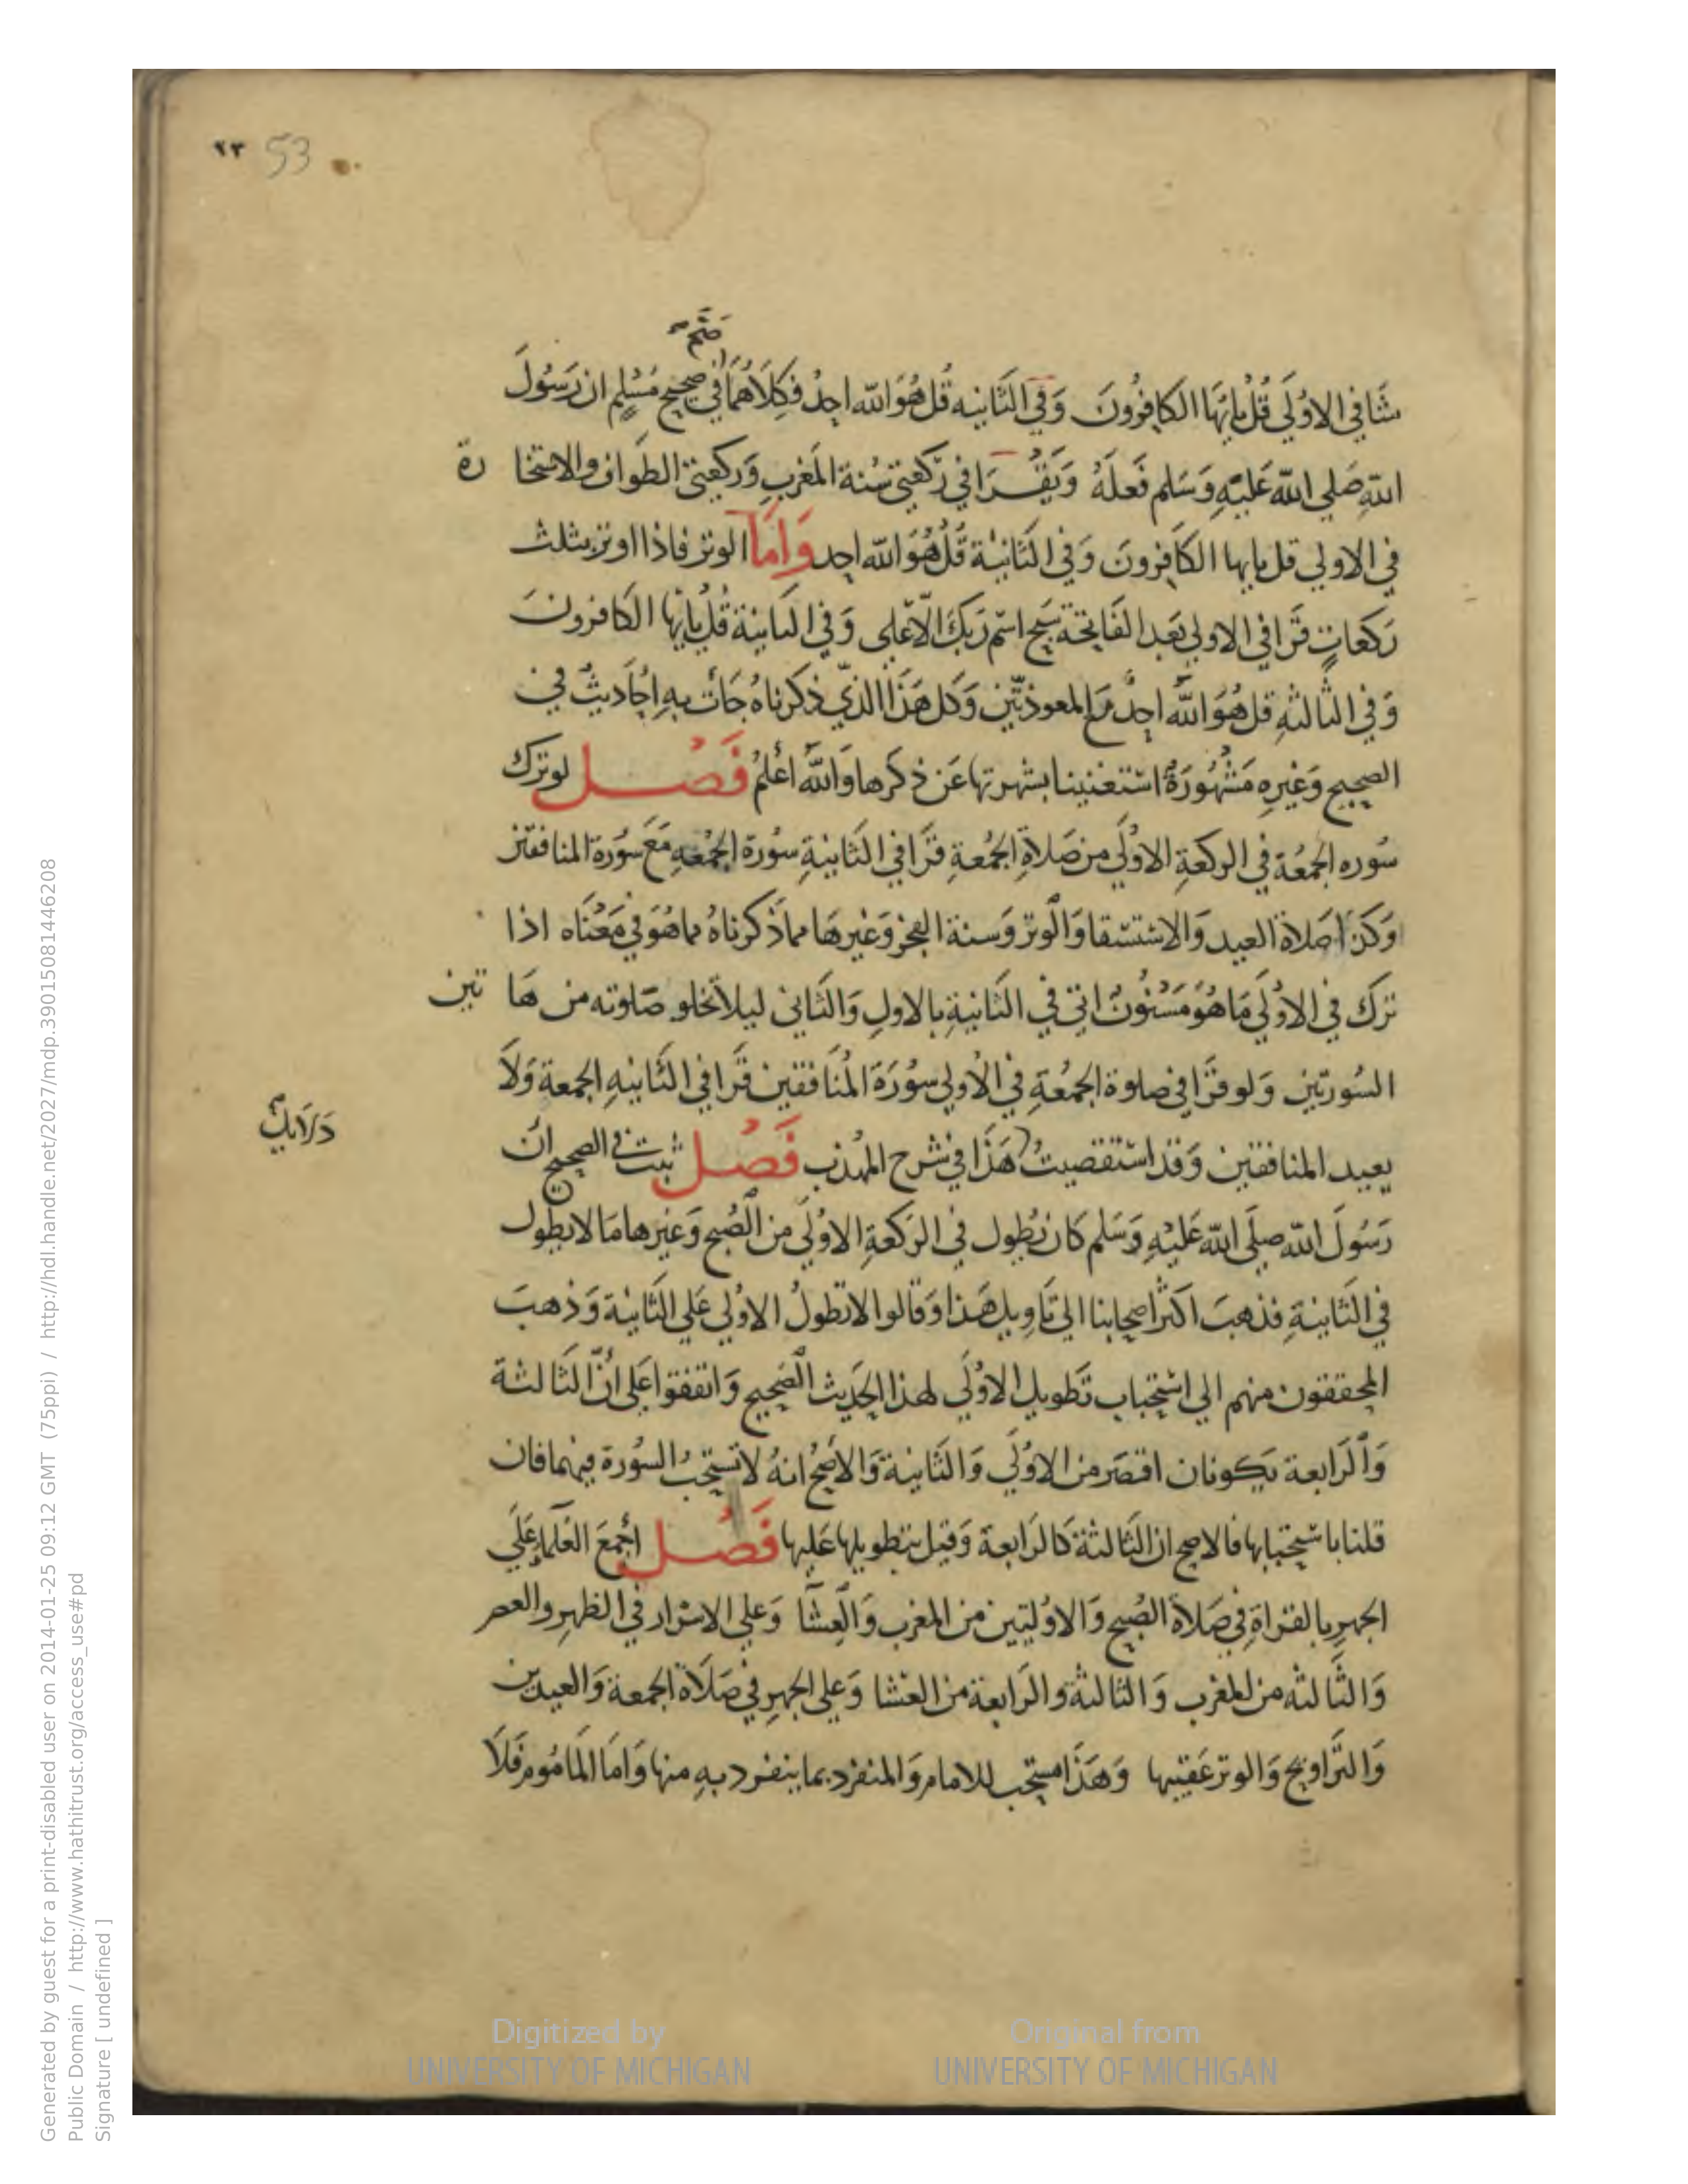 ٢٣ 53
صح
شا في الاولي قل يايها الكافرون وفي الثانيه قل هو الله احد فكلاهما في صحيح مسلم ان رسول
الله صلي الله عليه وسلم فعله ويقرا في ركعتي سنة المغرب وركعتي الطواف والاستخا رة
في الاولي قل يايها الكافرون وفي الثانية قل هو الله احد واما الوتر فاذا اوتر بثلث
ركعات قرا في الاولي بعد الفاتحة سبح اسم ربك الاعلى وفي الثانية قل يايها الكافرون
وفي الثالثه قل هو الله احد مع المعوذتين وكل هذا الذي ذكرناه جات به احاديث في
الصحيح وغيره مشهورة استغنينا بشهرتها عن ذكرها والله اعلم فصل لو ترك
سوره الجمعة في الركعة الاولي من صلاة الجمعة قرا في الثانية سورة الجمعه مع سورة المنافقين
وكذا صلاة العيد والاستسقا والوتر وسنة الفجر وغيرها مما ذكرناه مما هو في معناه اذا
ترك في الاولي ما هو مسنون اتي في الثانية بالاول والثاني ليلا تخلو صلوته من ها تين
السورتين ولو قرا في صلوة الجمعة في الاولي سورة المنافقين قرا في الثانيه الجمعة ولا
يعيد المنافقين وقد استقصيت هذا في شرح المهذب فصل ثبت في الصحيح ان
دلايل
رسول الله صلي الله عليه وسلم كان يطول في الركعة الاولي من الصبح وغيرها ما لا يطول
في الثانية فذهب اكثر اصحابنا الي تاويل هذا وقالوا لا تطول الاولي علي الثانية وذهب
المحققون منهم الي استحباب تطويل الاولي لهذا الحديث الصحيح واتفقوا على ان الثالثة
والرابعة يكونان اقصر من الاولي والثانية والاصح انه لا تستحب السورة فيهما فان
قلنا باستحبابها فالاصح ان الثالثة كالرابعة وقيل بتطويلها عليها فصل اجمع العلماء علي
الجهر بالقراة في صلاة الصبح والاوليين من المغرب والعشا وعلي الاسرار في الظهر والعصر
والثالثه من المغرب والثالثة والرابعة من العشا وعلي الجهر في صلاة الجمعة والعيدين
والتراويح والوتر عقيبها وهذا مستحب للامام والمنفرد بما ينفرد به منها واما الماموم فلا
Generated by guest for a print-disabled user on 2014-01-25 09:12 GMT (75ppi) / http://hdl.handle.net/2027/mdp.39015081446208
Public Domain / http://www.hathitrust.org/access_use#pd
Signature [ undefined ]
Digitized by
UNIVERSITY OF MICHIGAN
Original from
UNIVERSITY OF MICHIGAN